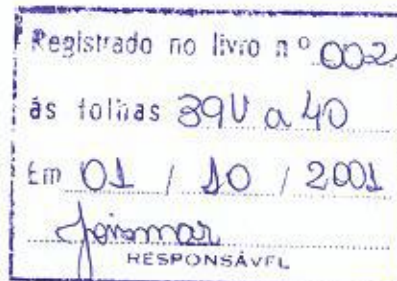 Registrado no livro nº 002
ás folhas 39V a 40
Em 01 / 10 / 2001
Joismar
RESPONSÁVEL